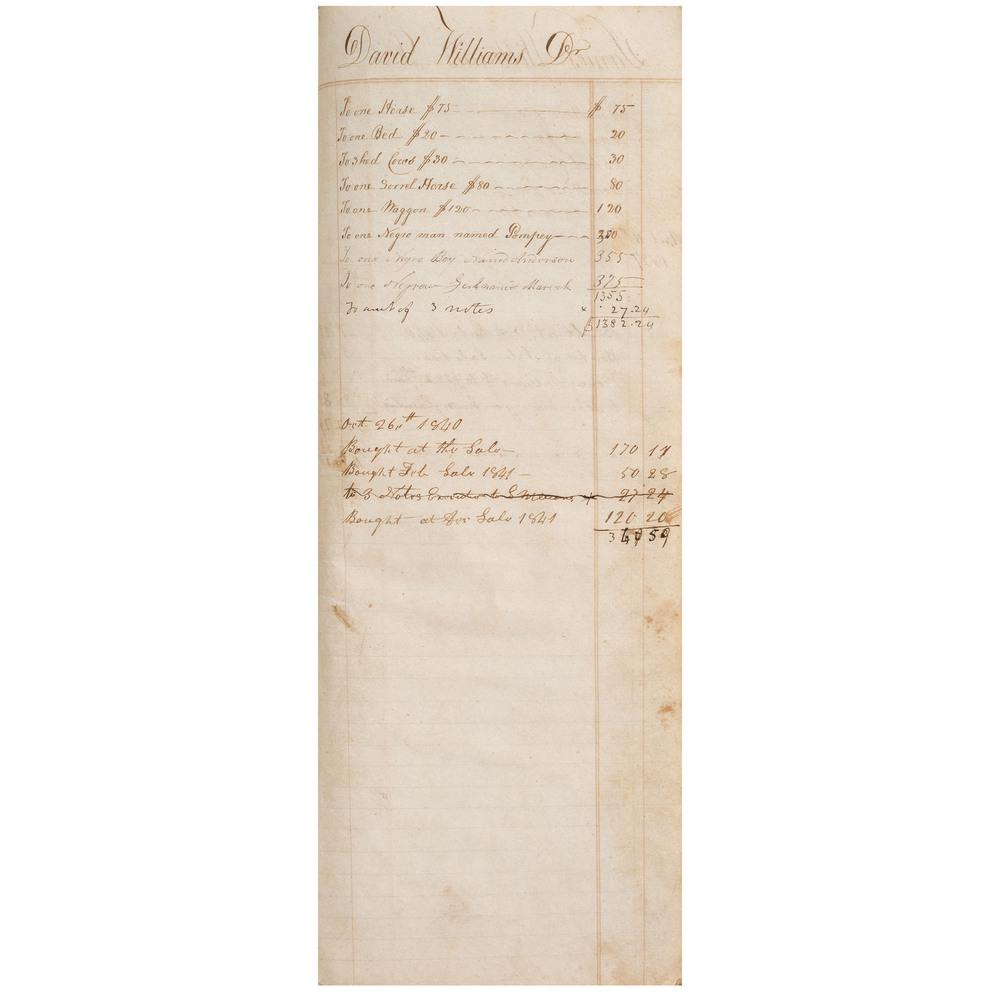 David Williams Dr
To one Horse $75 $ 75
To one Bed $20 20
To 3 hed Cows $30 30
To one Sorrel Horse $80 80
To one Waggon $120 120
To one Negro man named Pompey 300
To one Negro Boy named Anderson 355
To one Negrow 375
1355
To amt of 3 notes x 27.24
$1382.24
Oct. 26th 1840
Bought at the Sale 170 14
Bought Feb Sale 1841 50 28
to 3 Notes x 27 24
Bought at Sale 1841 120 20